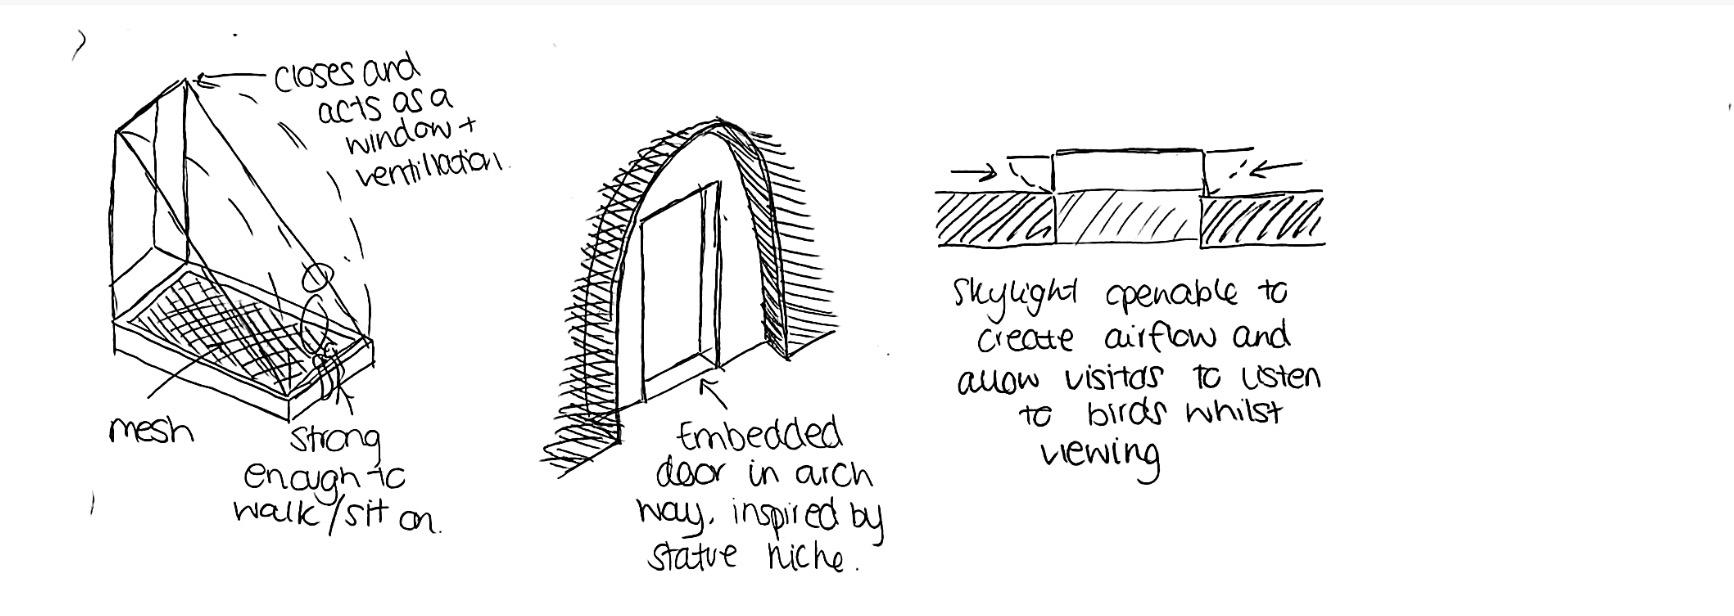 closes and
acts as a
window +
ventillation.
mesh
strong
enough to
walk/sit on.
Embedded
door in arch
way, inspired by
statue niche.
Skylight openable to
create airflow and
allow visitors to listen
to birds whilst
viewing